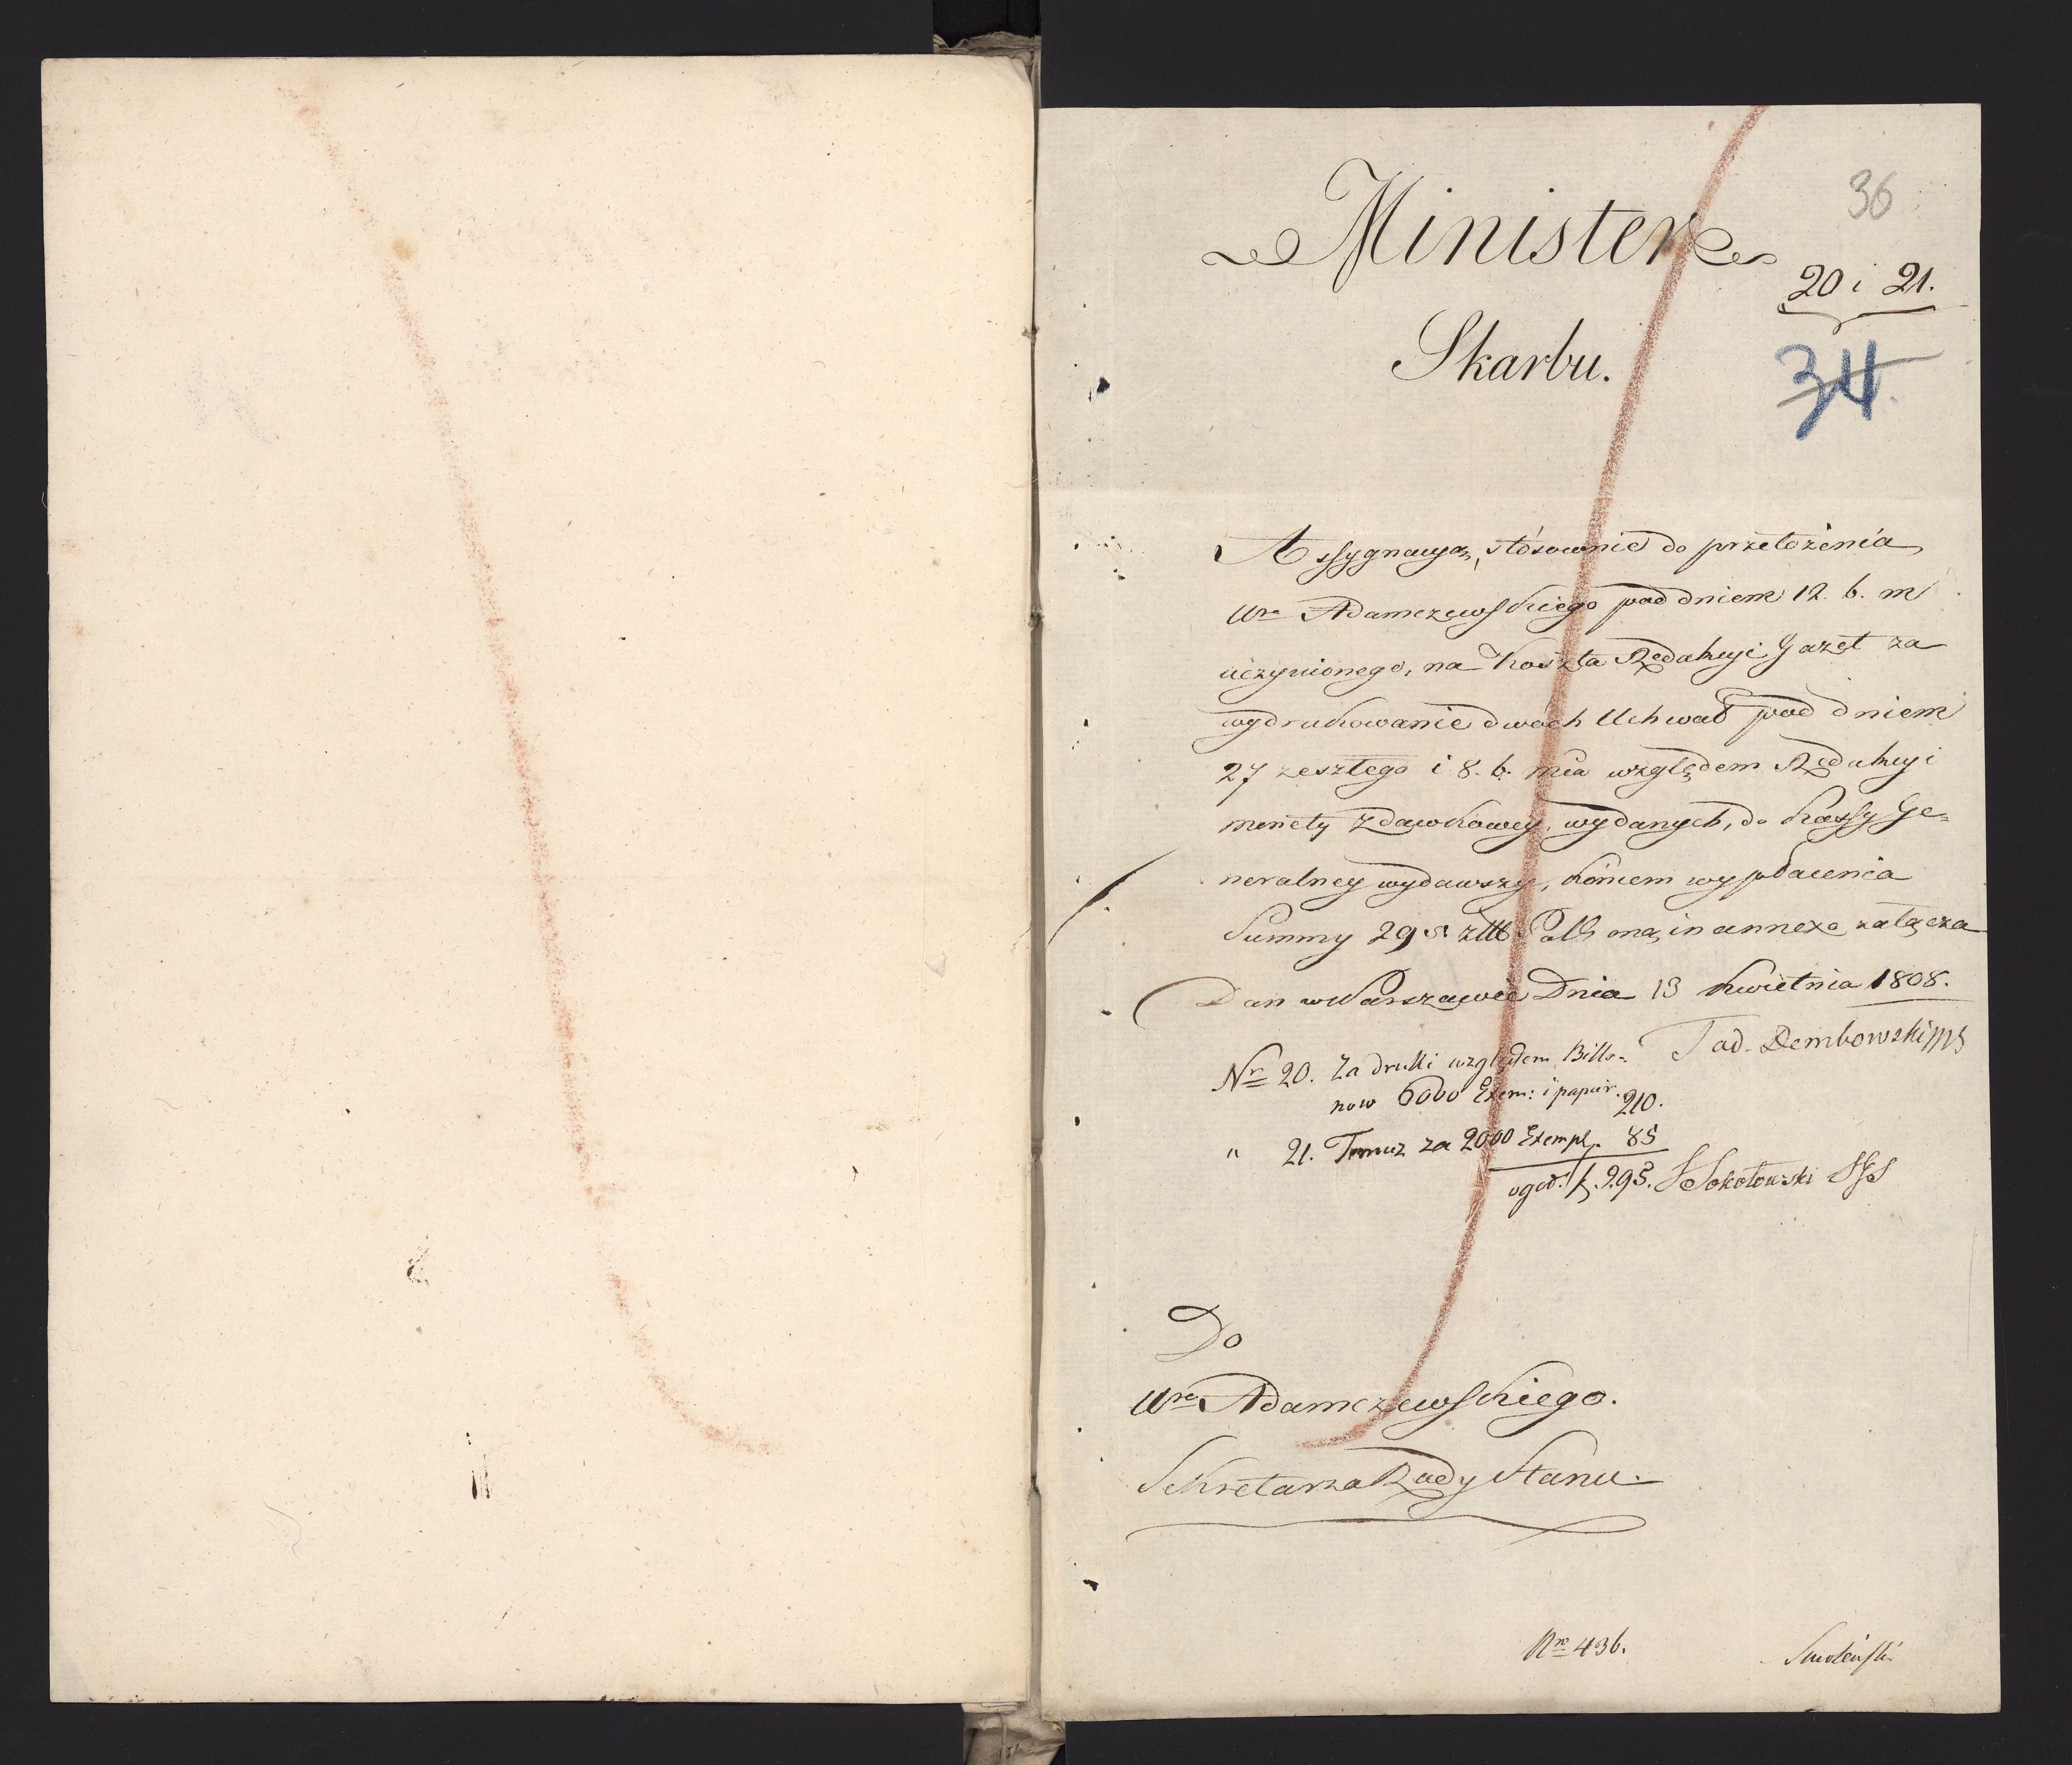 36
Minister
20 i 21.
Skarbu.
34.
Assygnacyą, stósownie do przełożenia
Ur° Adamczewskiego pod dniem 12. b. m
uczynionego, na Koszta Redakcyi Gazet za
wydrukowanie dwoch Uchwał pod dniem
27 zeszłego i 8. b. mca względem Redukcyi
monety Zdawkowey, wydanych, do Kassy Ge=
neralney wydawszy, końcem wypłacenia
Summy 295 złł Pols oną in annexo załącza
Dan w Warszawie Dnia 13 Kwietnia 1808.
Tad. Dembowski MS
Nr 20. Za druki względem Billo=
now 6000 Exem: i papier. 210.
" 21. Temuz za 2000 Exempl. 85
ogół. f. 295. Sokołowski SJS
Do
Ur° Adamczewskiego.
Sekretarza Rady Stanu.
Nro 436.
Smoleński